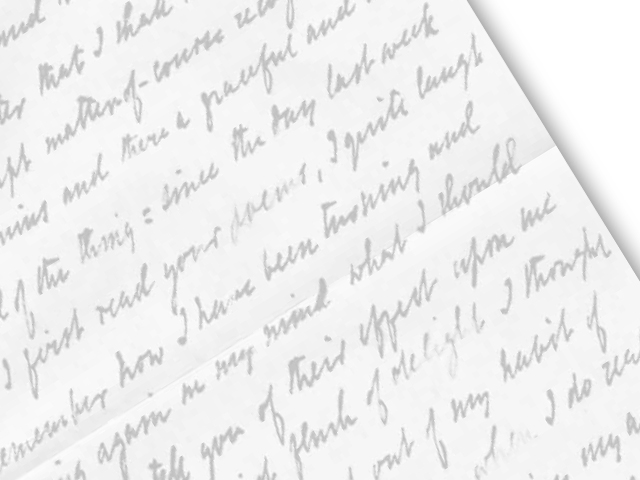 that I shall
matter-of-course reco
and there a graceful and
of the thing: since the day last week
I first read your poems, I quite laugh
remember how I have been turning and
again in my mind what I should
tell you of their effect upon me
flush of delight I thought
out of my habit of
when I do rea
my a